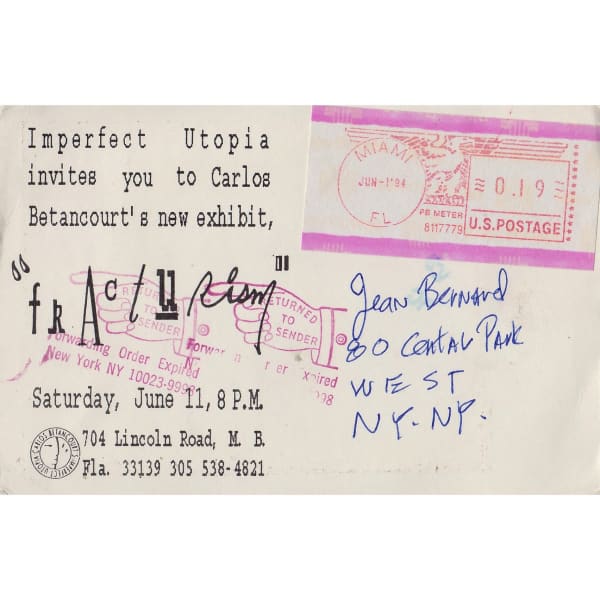 Imperfect Utopia
invites you to Carlos
Betancourt's new exhibit,
"fRActuRism"
Saturday, June 11, 8 P.M.
704 Lincoln Road, M. B.
Fla. 33139 305 538-4821
CARLOS BETANCOURT'S IMPERFECT UTOPIA
MIAMI
JUN-1'94
FL
0.19
PB METER
8117779
U.S. POSTAGE
RETURNED
TO
SENDER
Forwarding Order Expired
New York NY 10023-9998
RETURNED
TO
SENDER
Jean Bernard
80 Central Park
WEST
NY. NY.